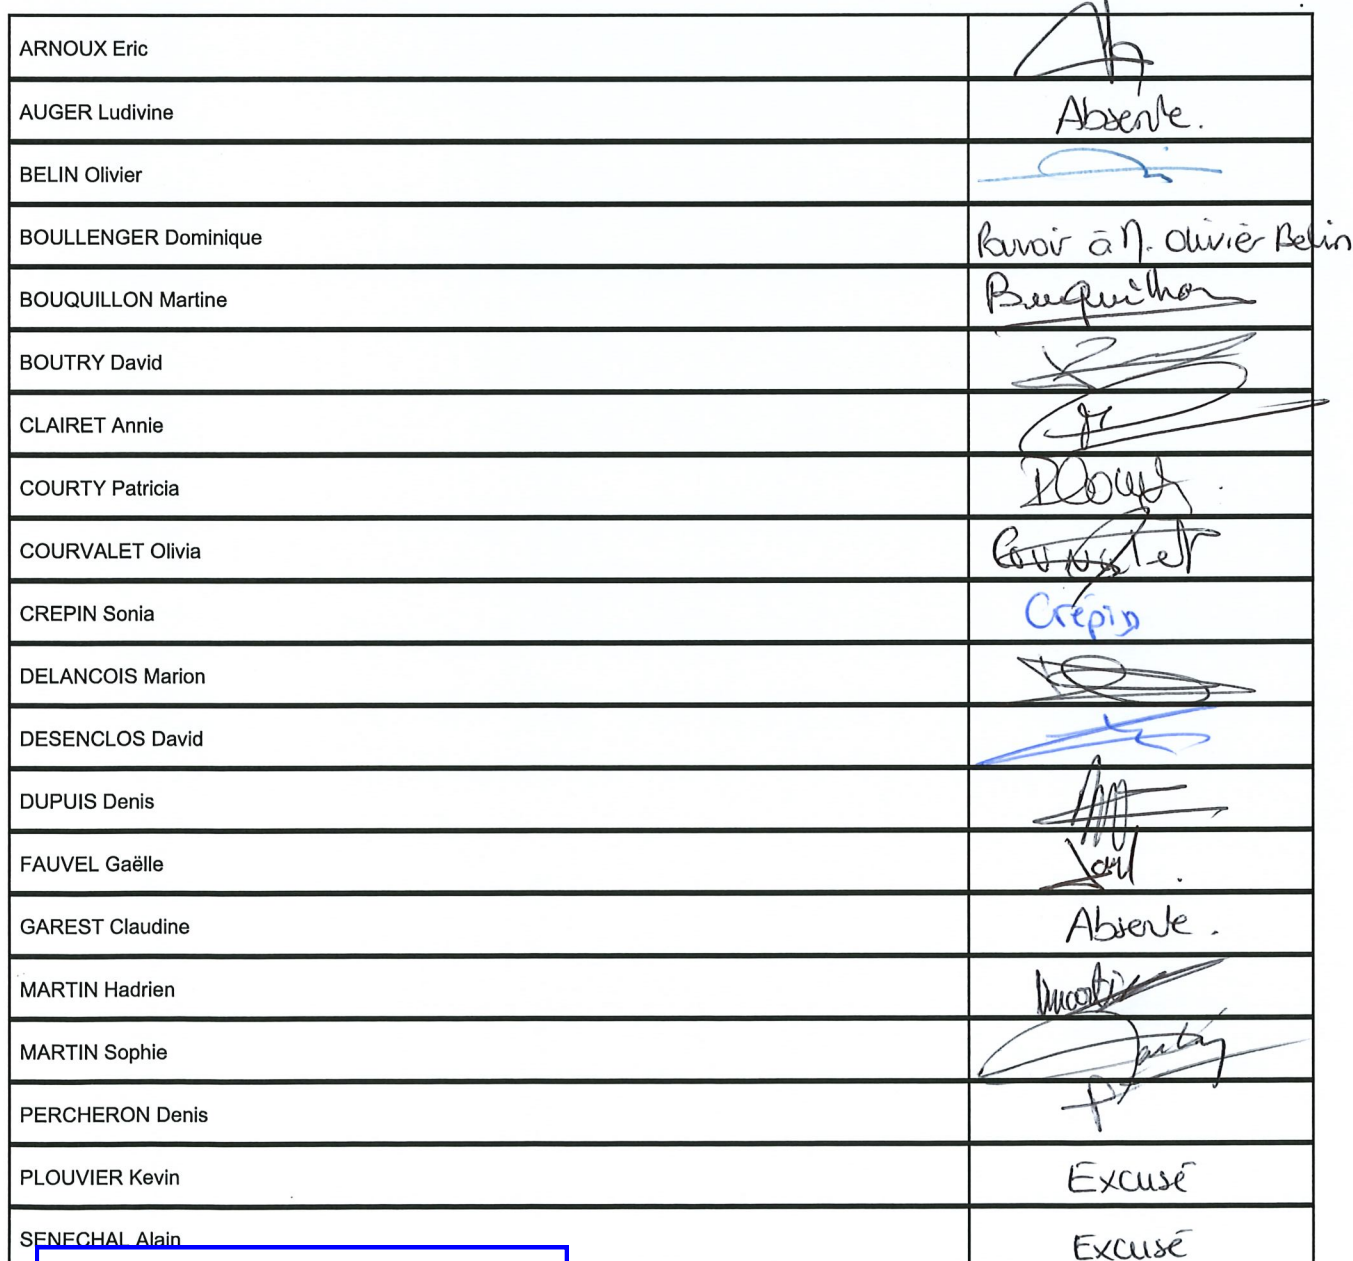 ARNOUX Eric
AUGER Ludivine Absente.
BELIN Olivier
BOULLENGER Dominique Pouvoir à M. Olivier Belin
BOUQUILLON Martine Bouquillon
BOUTRY David
CLAIRET Annie
COURTY Patricia
COURVALET Olivia
CREPIN Sonia Crépin
DELANCOIS Marion
DESENCLOS David
DUPUIS Denis
FAUVEL Gaëlle
GAREST Claudine Absente.
MARTIN Hadrien
MARTIN Sophie
PERCHERON Denis
PLOUVIER Kevin Excusé
SENECHAL Alain Excusé